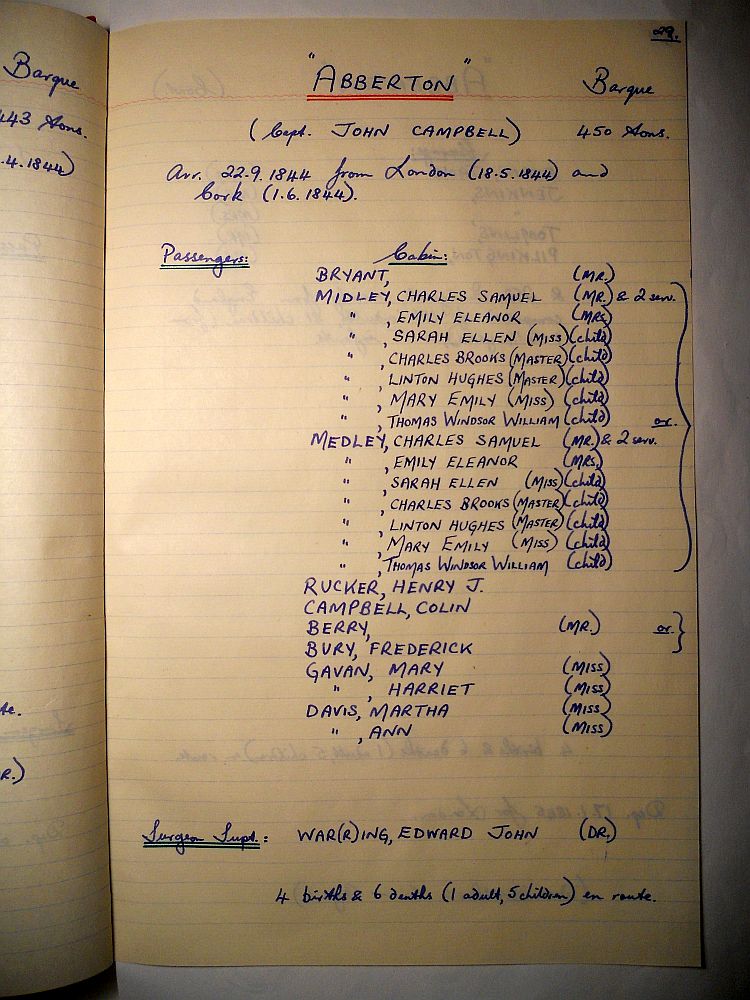 29.
Barque
443 tons.
.4.1844)
te.
R.)
"ABBERTON" Barque
(Capt. JOHN CAMPBELL) 450 tons.
Arr. 22.9.1844 from London (18.5.1844) and
Cork (1.6.1844).
Passengers: Cabin:
BRYANT, (MR.)
MIDLEY, CHARLES SAMUEL (MR.) & 2 serv.
" , EMILY ELEANOR (MRS.)
" , SARAH ELLEN (MISS) (child)
" , CHARLES BROOKS (MASTER) (child)
" , LINTON HUGHES (MASTER) (child)
" , MARY EMILY (MISS) (child)
" , THOMAS WINDSOR WILLIAM (child) or.
MEDLEY, CHARLES SAMUEL (MR.) & 2 serv.
" , EMILY ELEANOR (MRS.)
" , SARAH ELLEN (MISS) (child)
" , CHARLES BROOKS (MASTER) (child)
" , LINTON HUGHES (MASTER) (child)
" , MARY EMILY (MISS) (child)
" , THOMAS WINDSOR WILLIAM (child)
RUCKER, HENRY J.
CAMPBELL, COLIN
BERRY, (MR.) or.
BURY, FREDERICK
GAVAN, MARY (MISS)
" , HARRIET (MISS)
DAVIS, MARTHA (MISS)
" , ANN (MISS)
Surgeon Supt.: WAR(R)ING, EDWARD JOHN (DR.)
4 births & 6 deaths (1 adult, 5 children) en route.